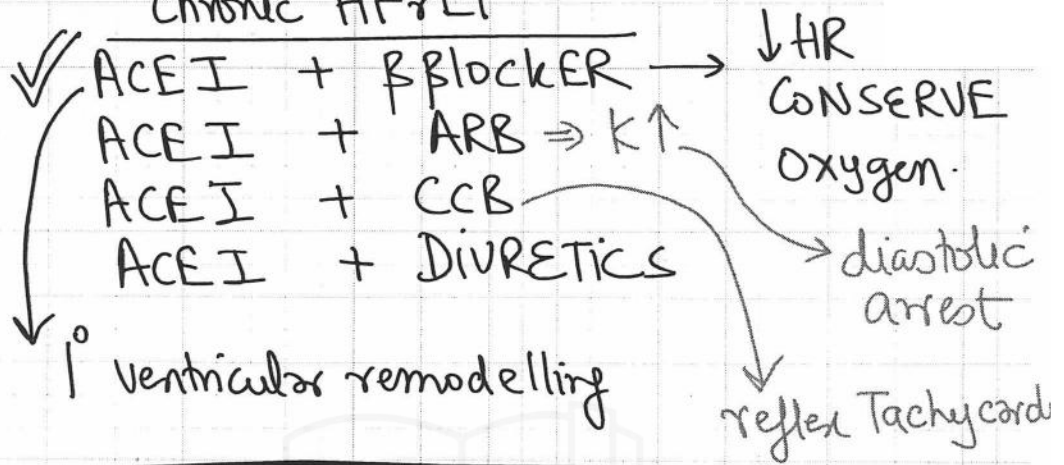 Chronic HFrEF
ACEI + βBlockER → ↓HR
CONSERVE
Oxygen.
ACEI + ARB ⇒ K↑
diastolic
arrest
ACEI + CCB
reflex Tachycard
ACEI + DiURETiCS
1° ventricular remodelling